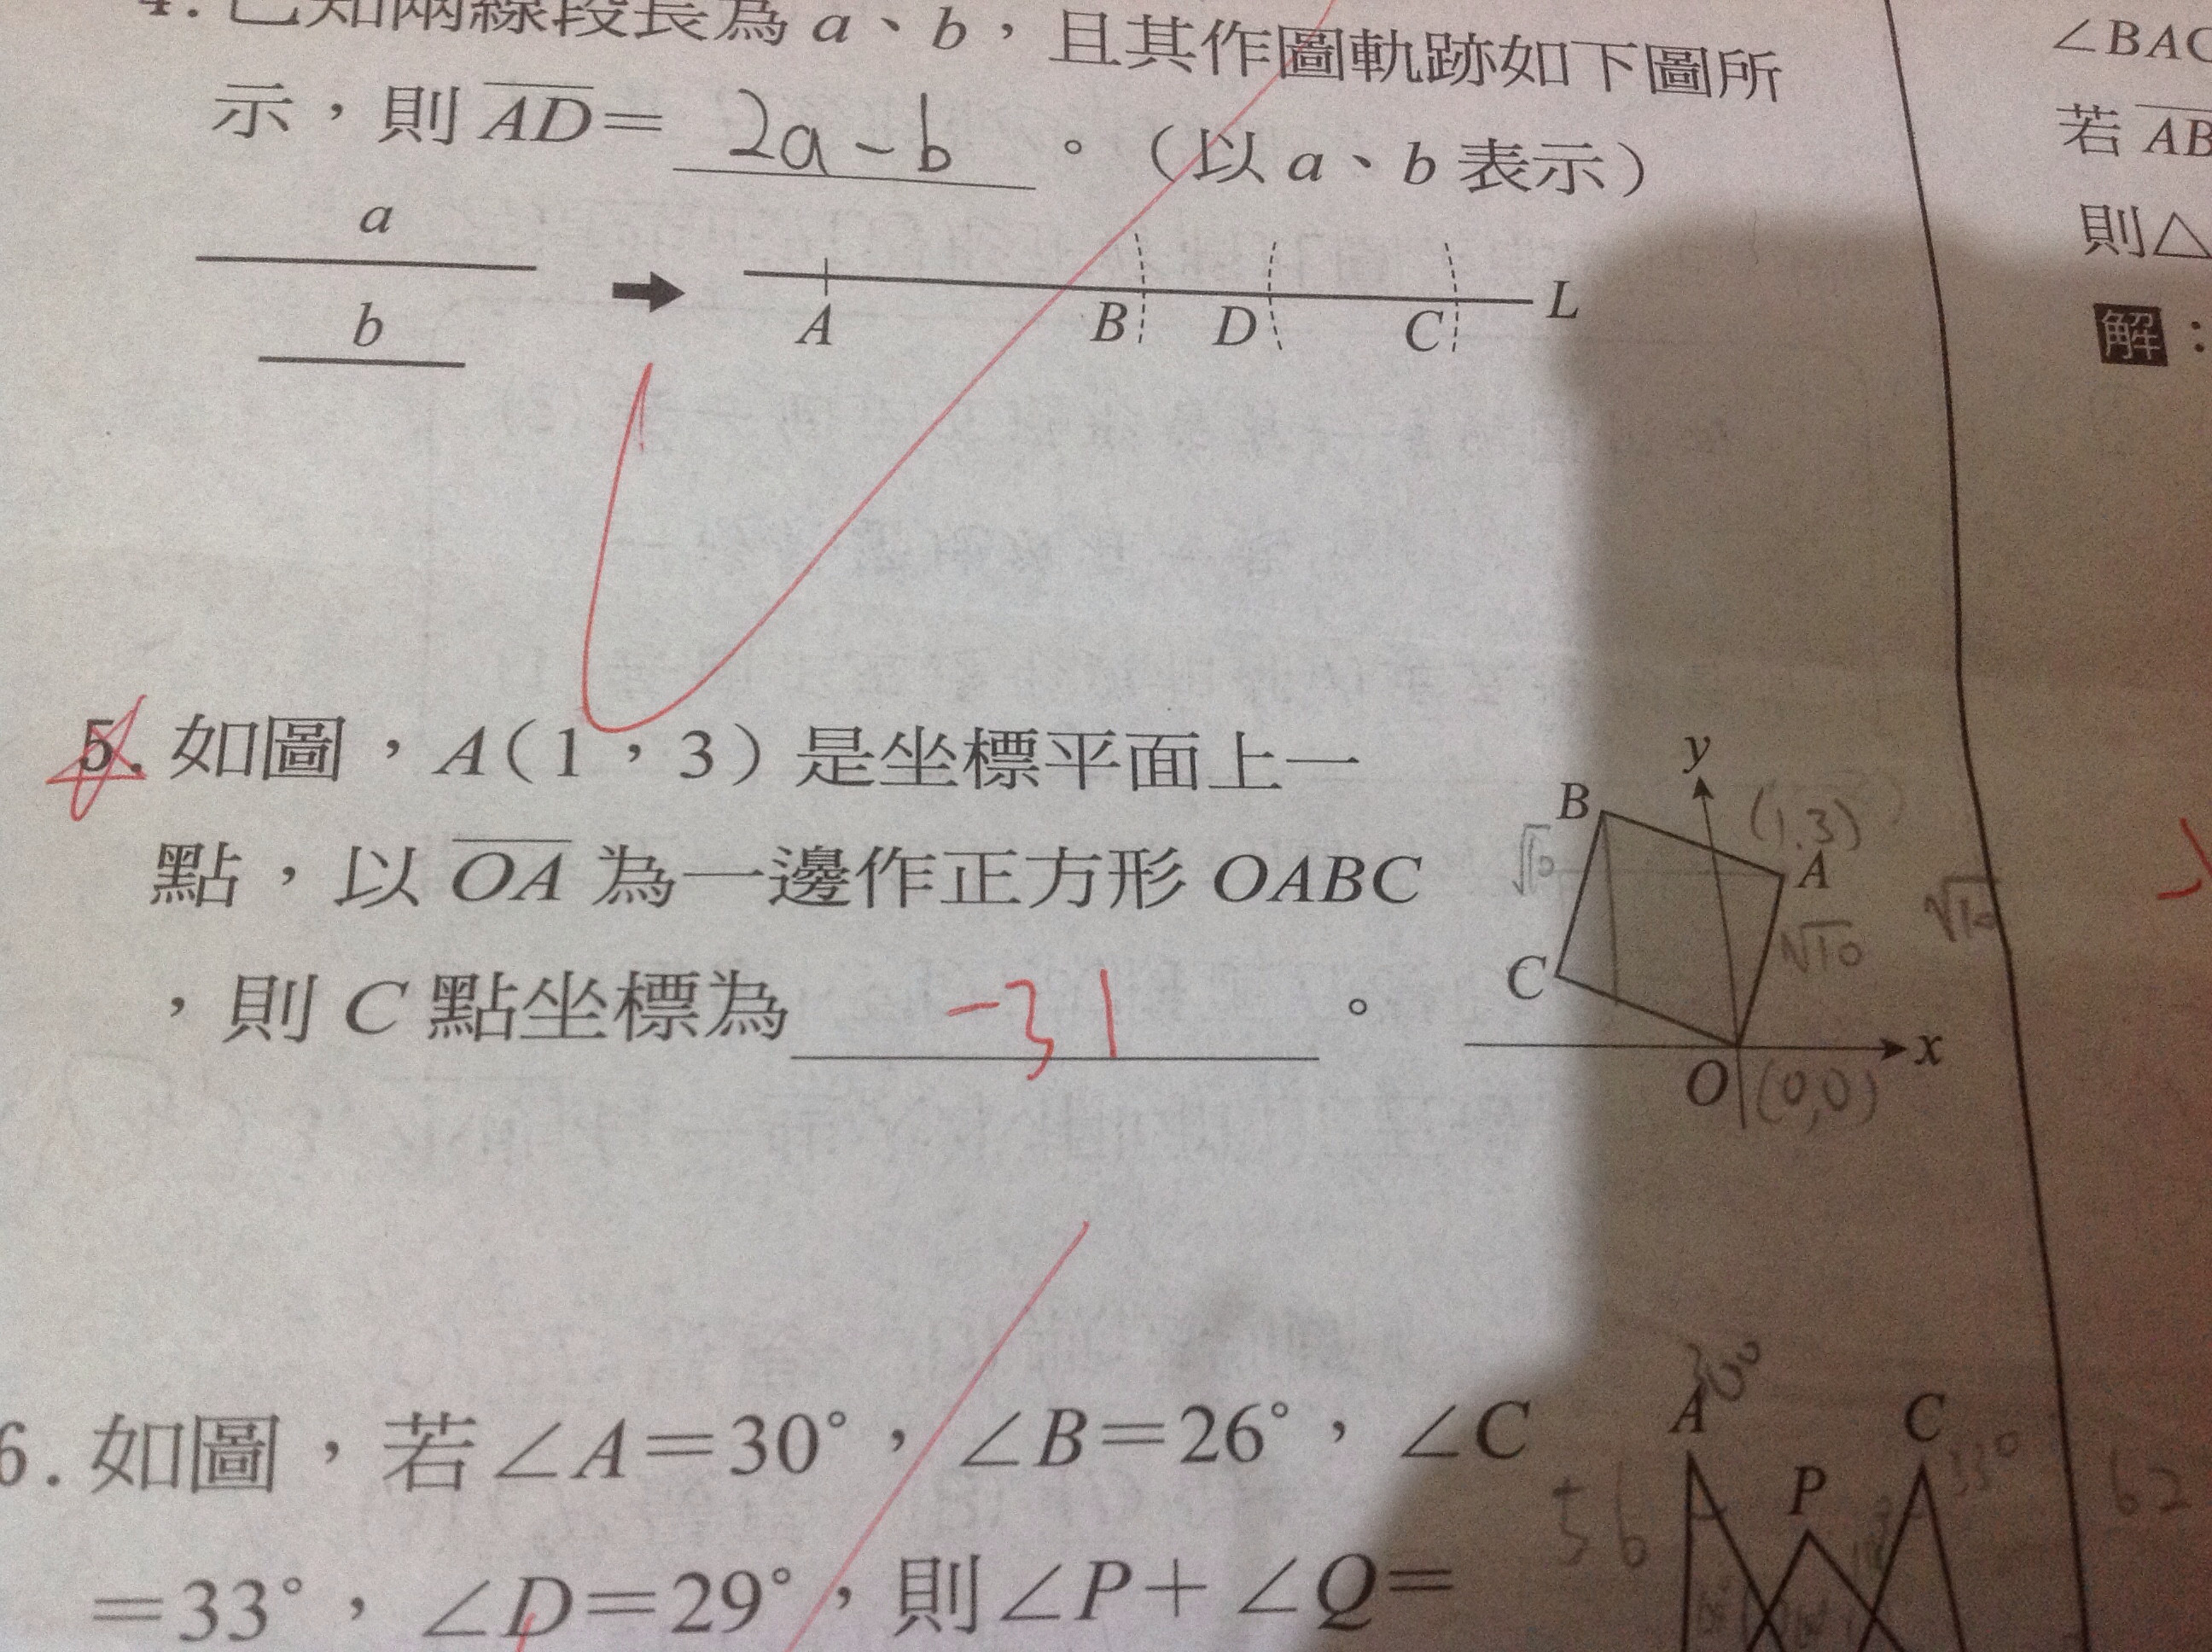 4. 已知兩線段長為 a、b，且其作圖軌跡如下圖所
示，則 AD= 2a-b 。（以 a、b 表示）
a
b
A B D C L
5. 如圖，A（1，3）是坐標平面上一
點，以 OA 為一邊作正方形 OABC
，則 C 點坐標為 -3 1 。
y
B (1,3)
√10 A √10
√10
C
O (0,0) x
6. 如圖，若∠A=30°，∠B=26°，∠C
=33°，∠D=29°，則∠P+∠Q=
30°
A C
33°
P
56 62
∠BAC
若 AB
則△
解：